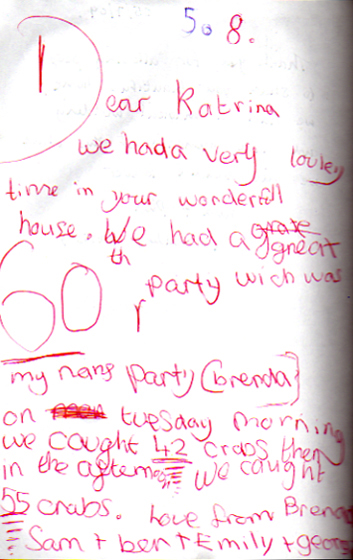 5. 8.
Dear Katrina
we had a very louley
time in your wonderfll
house. We had a great
60th party wich was
my nans party (brenda)
on tuesday morning
we caught 42 crabs then
in the afternoon we caught
55 crabs. Love from Brenda
Sam + ben + Emily + george